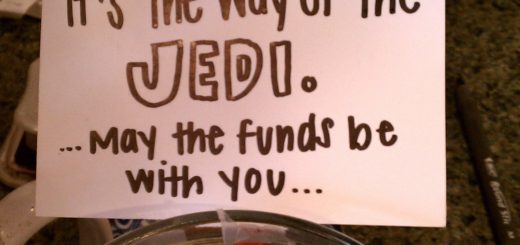 It's the way of the
JEDI.
...May the funds be
with you...